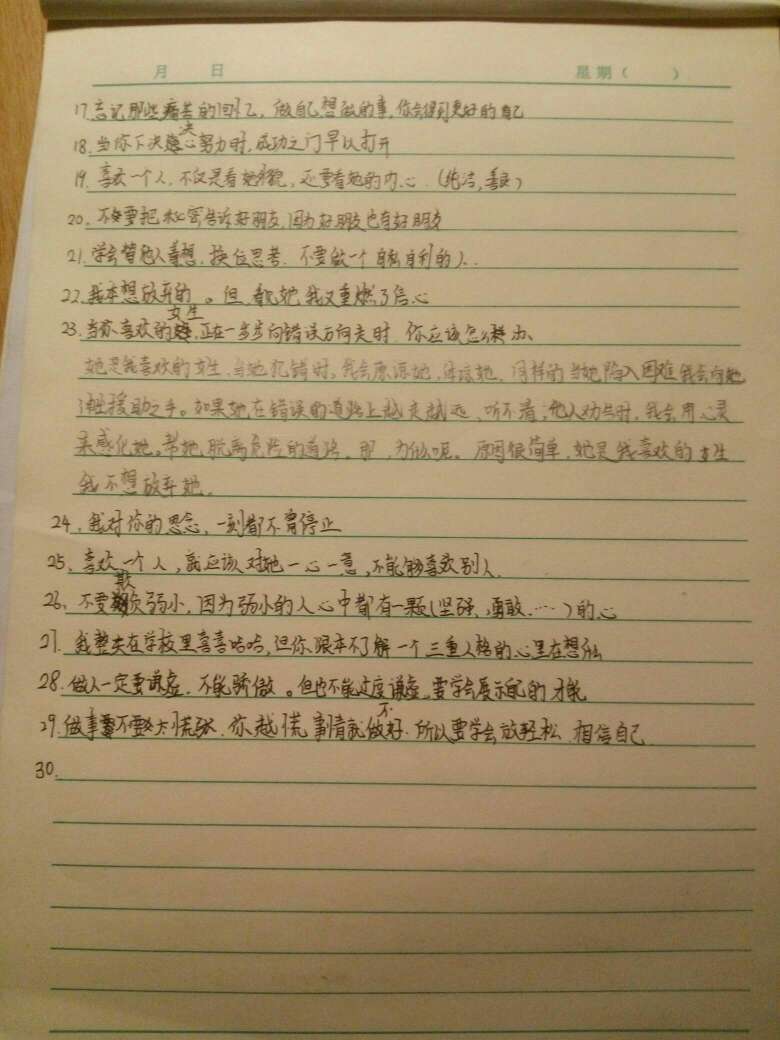 月 日 星期( )
17.忘记那些痛苦的回忆，做自己想做的事，你会得到更好的自己
18.当你下决心努力时，成功之门早以打开
19.喜欢一个人，不仅是看她外貌，还要看她的内心.(纯洁，善良)
20.不要把秘密告诉好朋友，因为好朋友也有好朋友
21.学会替他人着想，换位思考.不要做一个自私自利的人..
22.我本想放弃的。但，看见她我又重燃了信心
23.当你喜欢的女生，正在一步步向错误方向走时.你应该怎么样办
她是我喜欢的女生.当她犯错时，我会原谅她，体谅她.同样的当她陷入困难我会向她
伸援助之手。如果她在错误的道路上越走越远，听不清，他人劝告时，我会用心灵
来感化她。帮她脱离危险的道路.那，为什么呢。原因很简单，她是我喜欢的女生
我不想放弃她.
24.我对你的思念，一刻都不肯停止
25.喜欢一个人，我应该对她一心一意，不能够喜欢别人.
26.不要欺负弱小，因为弱小的人心中都有一颗(坚强.勇敢.…)的心
27.我整天在学校里喜喜哈哈，但你跟本不了解一个三重人格的心里在想什么
28.做人一定要谦虚，不能骄傲。但也不能过度谦虚，要学会展示自己的才能
29.做事不要太慌张.你越慌事情就做不好.所以要学会放轻松.相信自己.
30.